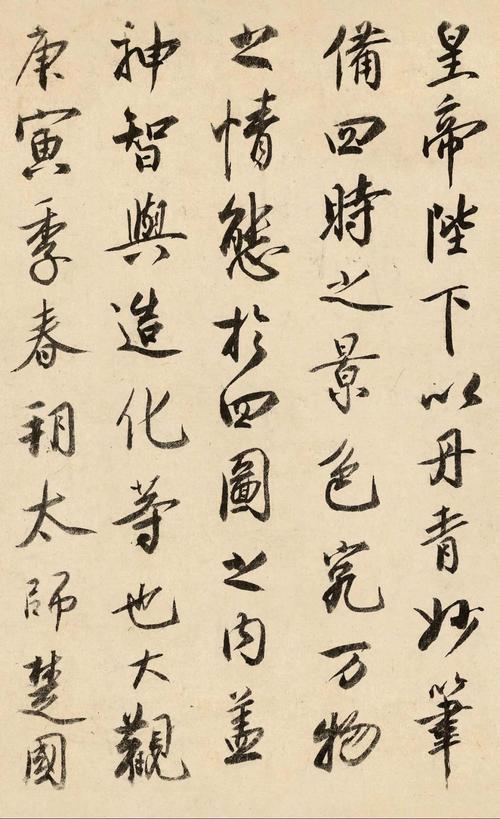 皇帝陛下以丹青妙筆
備四時之景色究万物
之情態於四圖之内盖
神智與造化等也大觀
庚寅季春朔太師楚國